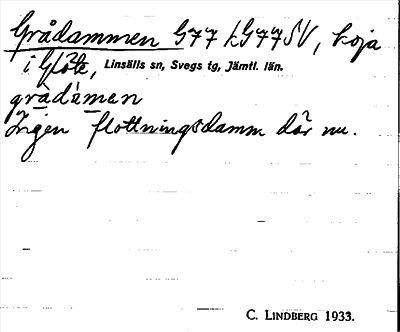 Grådammen G77 LG77SV, koja
i Glöte, Linsälls sn, Svegs tg, Jämtl. län.
gràdámen
Ingen flottningsdamm där nu.
C. LINDBERG 1933.